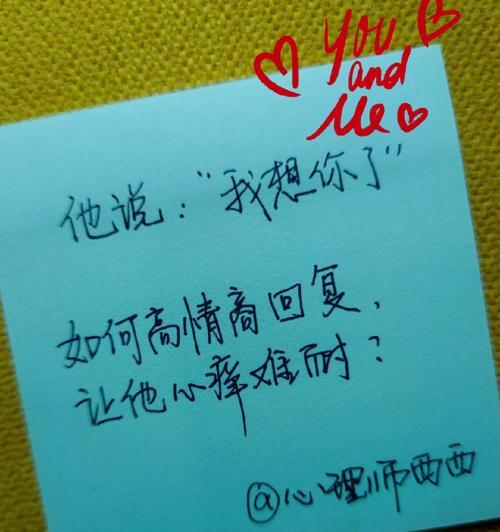 You
and
Me
他说:“我想你了”
如何高情商回复,
让他心痒难耐?
@心理师西西